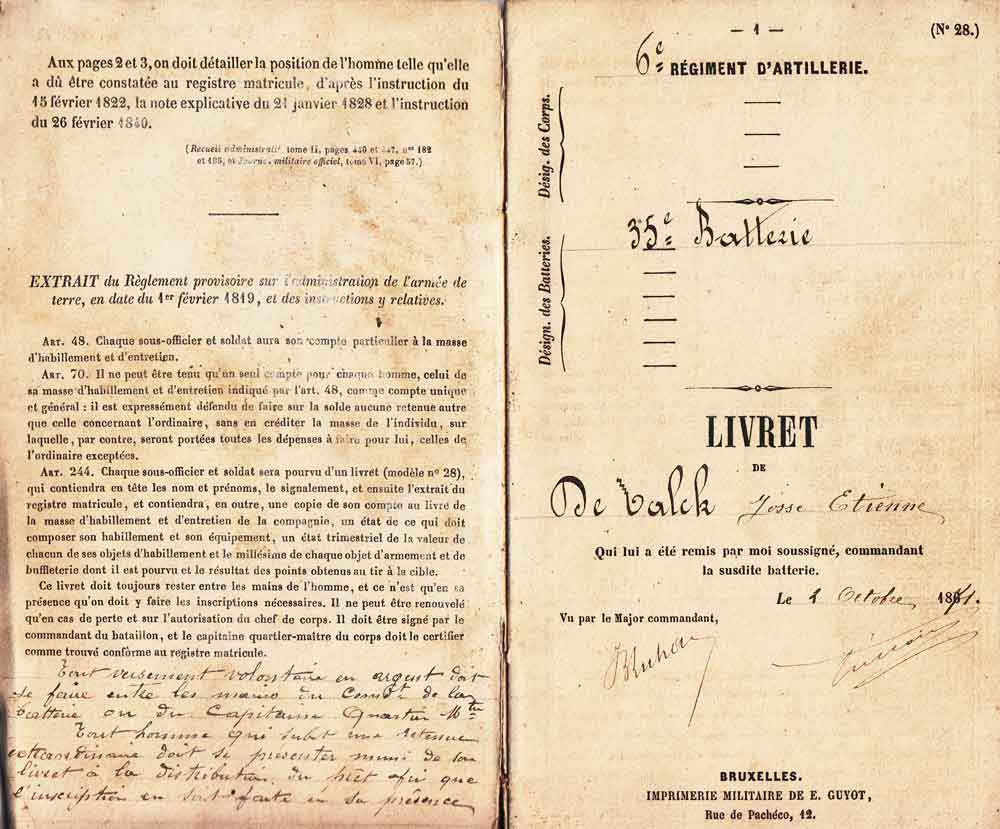 Aux pages 2 et 3, on doit détailler la position de l'homme telle qu'elle
a dû être constatée au registre matricule, d'après l'instruction du
15 février 1822, la note explicative du 21 janvier 1828 et l'instruction
du 26 février 1840.
(Recueil administratif, tome II, pages 440 et 447, nos 182
et 185, et Journ. militaire officiel, tome VI, page 57.)
EXTRAIT du Règlement provisoire sur l'administration de l'armée de
terre, en date du 1er février 1819, et des instructions y relatives.
ART. 48. Chaque sous-officier et soldat aura son compte particulier à la masse
d'habillement et d'entretien.
ART. 70. Il ne peut être tenu qu'un seul compte pour chaque homme, celui de
sa masse d'habillement et d'entretien indiqué par l'art. 48, comme compte unique
et général : il est expressément défendu de faire sur la solde aucune retenue autre
que celle concernant l'ordinaire, sans en créditer la masse de l'individu, sur
laquelle, par contre, seront portées toutes les dépenses à faire pour lui, celles de
l'ordinaire exceptées.
ART. 244. Chaque sous-officier et soldat sera pourvu d'un livret (modèle n° 28),
qui contiendra en tête les nom et prénoms, le signalement, et ensuite l'extrait du
registre matricule, et contiendra, en outre, une copie de son compte au livre de
la masse d'habillement et d'entretien de la compagnie, un état de ce qui doit
composer son habillement et son équipement, un état trimestriel de la valeur de
chacun de ses objets d'habillement et le millésime de chaque objet d'armement et de
buffleterie dont il est pourvu et le résultat des points obtenus au tir à la cible.
Ce livret doit toujours rester entre les mains de l'homme, et ce n'est qu'en sa
présence qu'on doit y faire les inscriptions nécessaires. Il ne peut être renouvelé
qu'en cas de perte et sur l'autorisation du chef de corps. Il doit être signé par le
commandant du bataillon, et le capitaine quartier-maître du corps doit le certifier
comme trouvé conforme au registre matricule.
Tout versement volontaire en argent doit
se faire entre les mains du Comdt de la
batterie ou du Capitaine Quartier Mtre
Tout homme qui subit une retenue
extraordinaire doit se présenter muni de son
livret à la distribution du prêt afin que
l'inscription en soit faite en sa présence
— 1 —
(N° 28.)
6e RÉGIMENT D'ARTILLERIE.
Désig. des Corps.
35e Batterie
Désign. des Batteries.
LIVRET
DE
De Valck Josse Etienne
Qui lui a été remis par moi soussigné, commandant
la susdite batterie.
Le Octobre 18
Vu par le Major commandant,
BRUXELLES.
IMPRIMERIE MILITAIRE DE E. GUYOT,
Rue de Pachéco, 12.